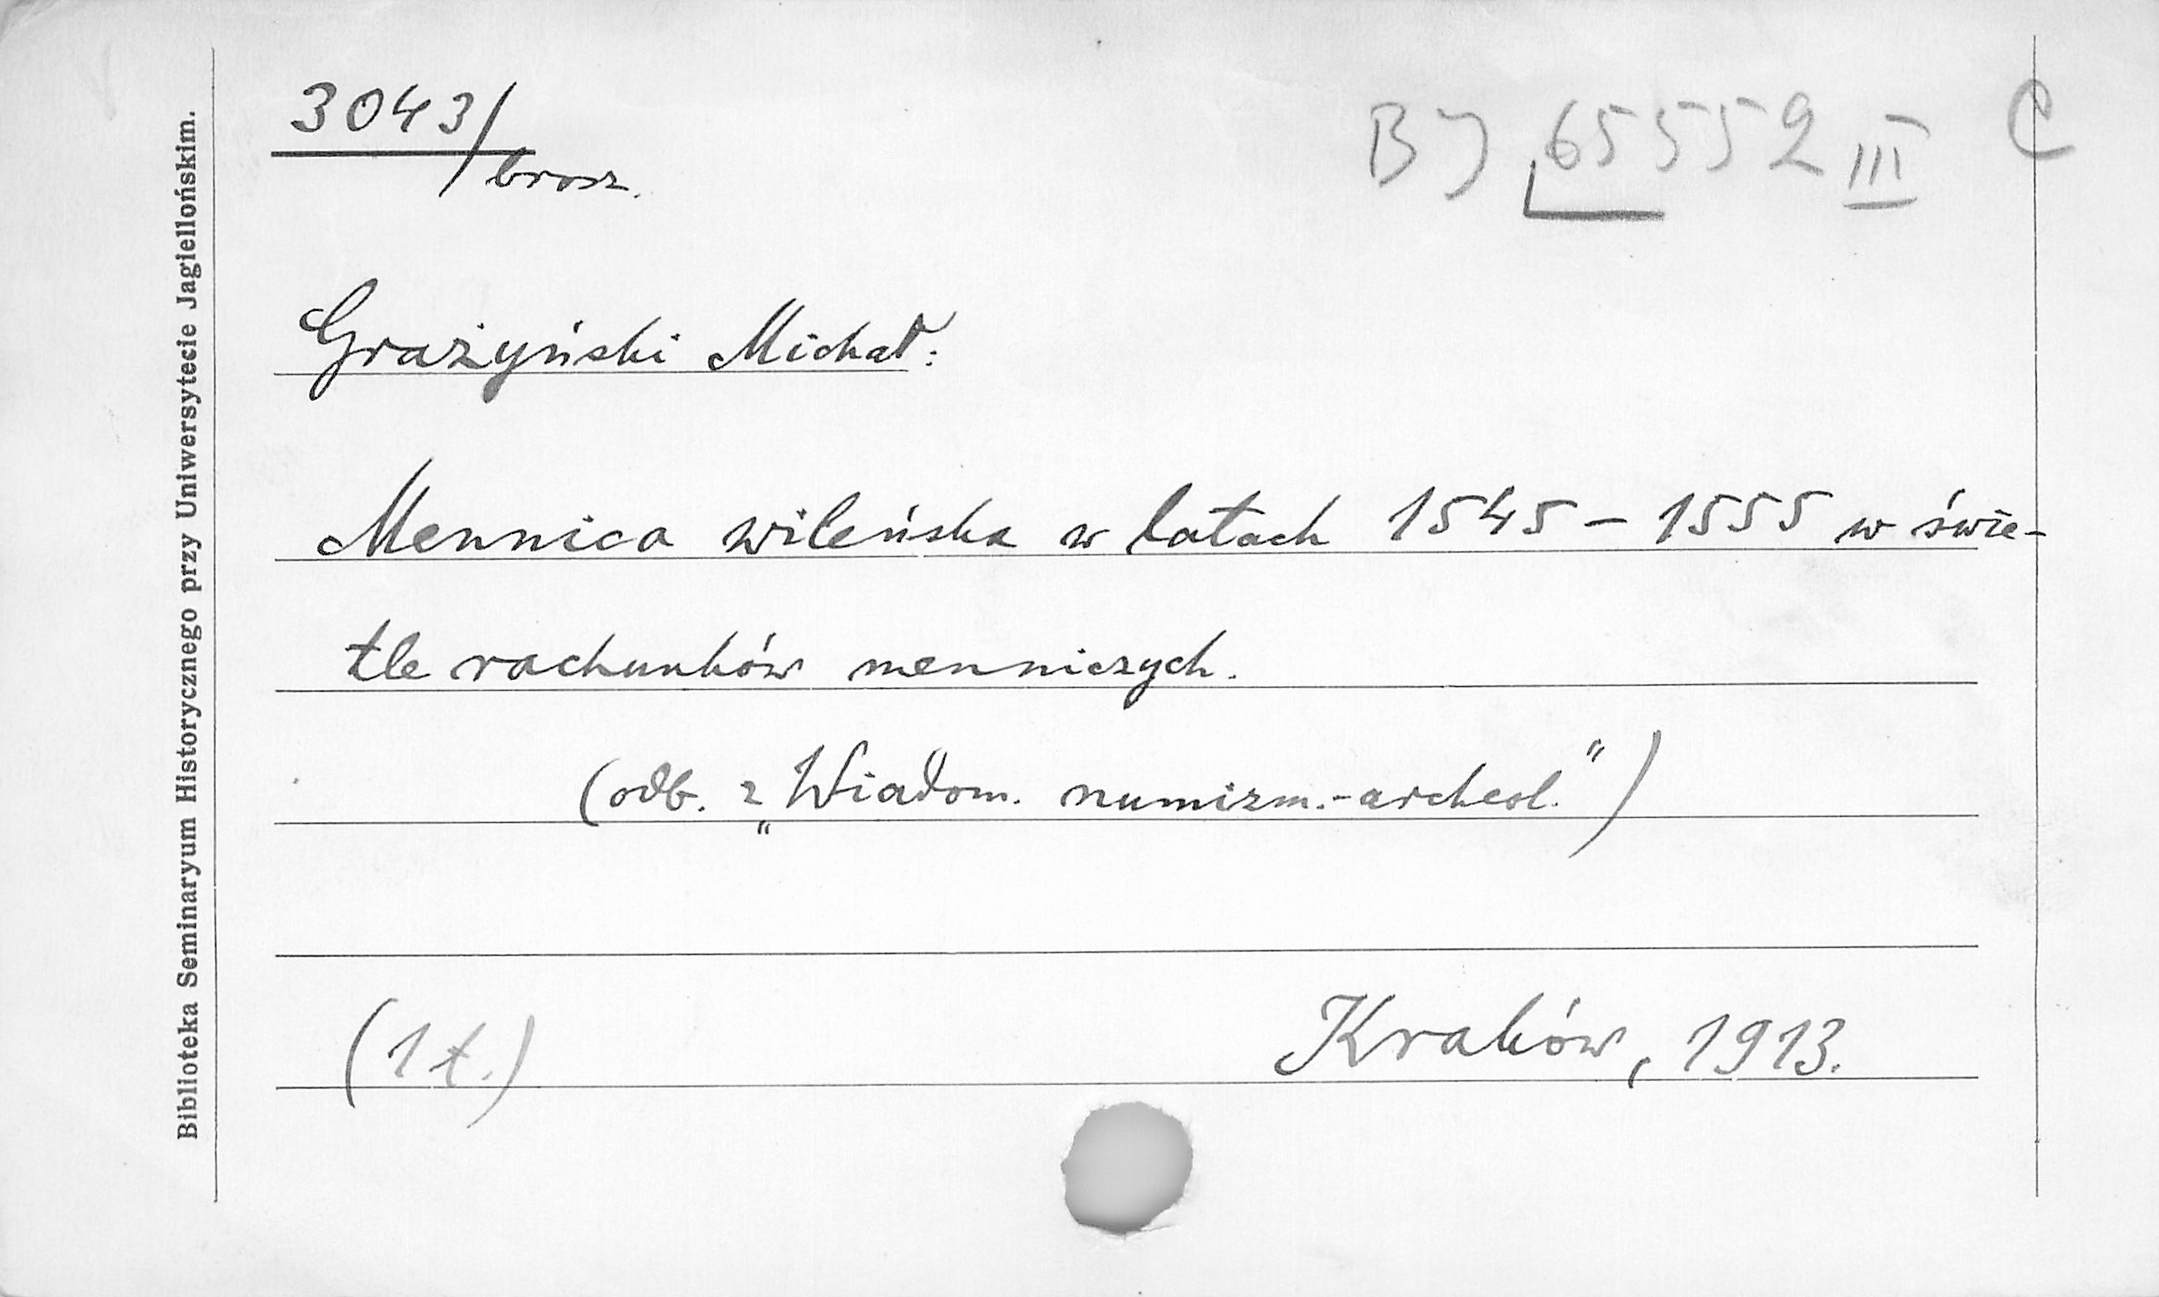 3043/brosz.
BJ 65552 III C
Grażyński Michał:
Mennica wileńska w latach 1545-1555 w świe-
tle rachunków menniczych.
(odb. z „Wiadom. numizm.-archeol.")
(1 t.)
Kraków, 1913.
Biblioteka Seminaryum Historycznego przy Uniwersytecie Jagiellońskim.